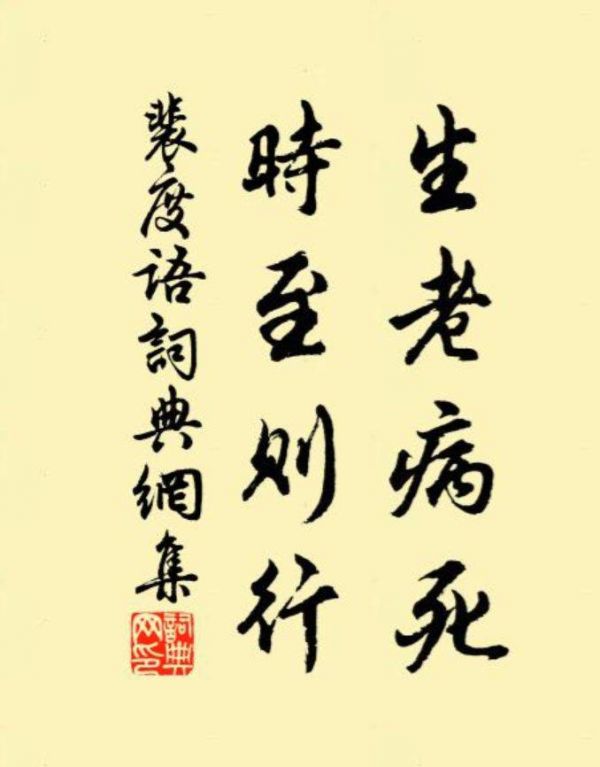 生老病死
時至則行
裴度語詞典網集
詞典网印